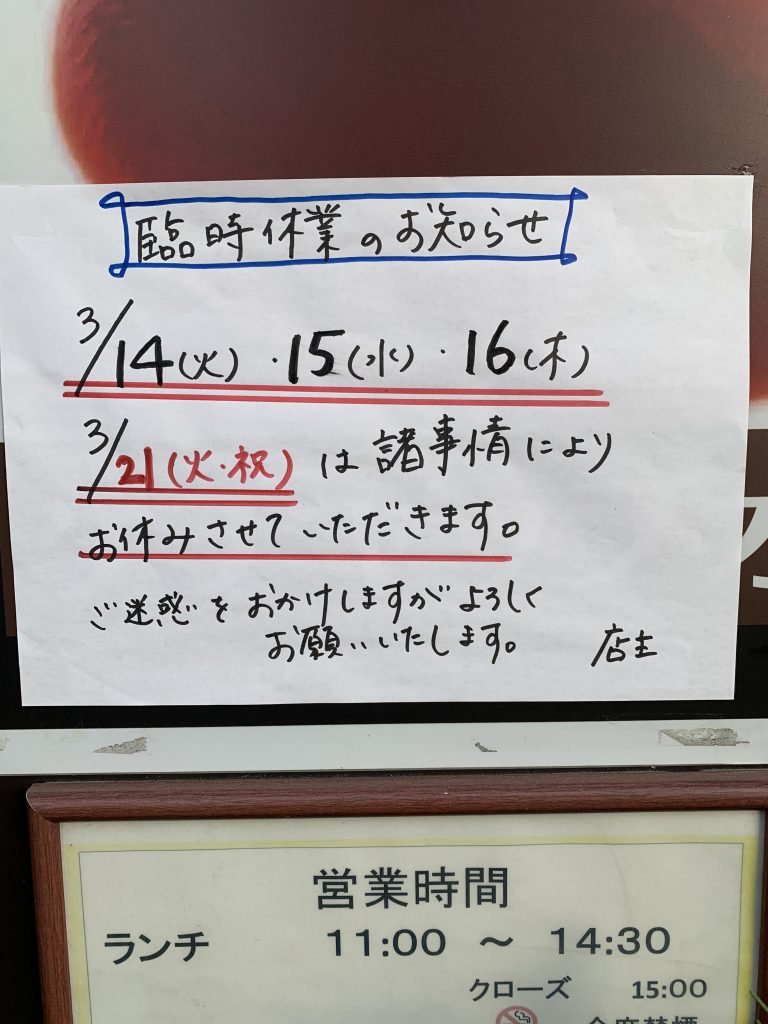 臨時休業のお知らせ
3/14(火)・15(水)・16(木)
3/21(火・祝)は諸事情により
お休みさせていただきます。
ご迷惑をおかけしますがよろしく
お願いいたします。 店主
営業時間
ランチ 11:00 ～ 14:30
クローズ 15:00